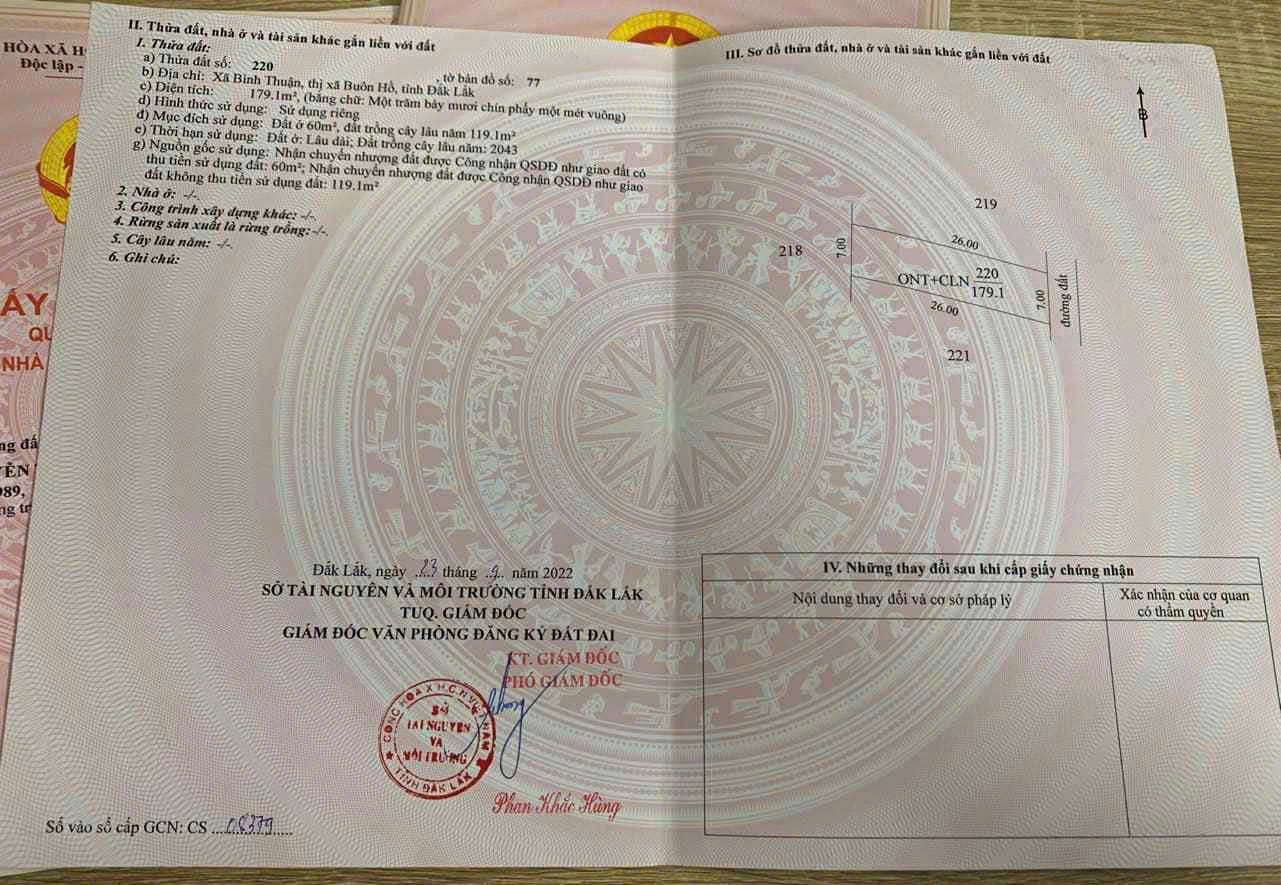 HÒA XÃ H
Độc lập -
ẤY
QU
NHÀ
ng đấ
YỄN
989,
ng tr
II. Thửa đất, nhà ở và tài sản khác gắn liền với đất
1. Thửa đất:
a) Thửa đất số: 220 , tờ bản đồ số: 77
b) Địa chỉ: Xã Bình Thuận, thị xã Buôn Hồ, tỉnh Đắk Lắk
c) Diện tích: 179.1m², (bằng chữ: Một trăm bảy mươi chín phẩy một mét vuông)
d) Hình thức sử dụng: Sử dụng riêng
đ) Mục đích sử dụng: Đất ở 60m², đất trồng cây lâu năm 119.1m²
e) Thời hạn sử dụng: Đất ở: Lâu dài; Đất trồng cây lâu năm: 2043
g) Nguồn gốc sử dụng: Nhận chuyển nhượng đất được Công nhận QSDĐ như giao đất có
thu tiền sử dụng đất: 60m²; Nhận chuyển nhượng đất được Công nhận QSDĐ như giao
đất không thu tiền sử dụng đất: 119.1m²
2. Nhà ở: -/-.
3. Công trình xây dựng khác: -/-.
4. Rừng sản xuất là rừng trồng: -/-.
5. Cây lâu năm: -/-.
6. Ghi chú:
Đắk Lắk, ngày ..23 tháng ..9.. năm 2022
SỞ TÀI NGUYÊN VÀ MÔI TRƯỜNG TỈNH ĐẮK LẮK
TUQ. GIÁM ĐỐC
GIÁM ĐỐC VĂN PHÒNG ĐĂNG KÝ ĐẤT ĐAI
KT. GIÁM ĐỐC
PHÓ GIÁM ĐỐC
CỘNG HÒA X.H.C.N VIỆT NAM
SỞ
TÀI NGUYÊN
VÀ
MÔI TRƯỜNG
TỈNH ĐẮK LẮK
Phan Khắc Hùng
Số vào sổ cấp GCN: CS ...08379....
III. Sơ đồ thửa đất, nhà ở và tài sản khác gắn liền với đất
B
219
218
7.00
26.00
ONT+CLN 220
179.1
26.00
7.00
đường đất
221
IV. Những thay đổi sau khi cấp giấy chứng nhận
Nội dung thay đổi và cơ sở pháp lý
Xác nhận của cơ quan
có thẩm quyền